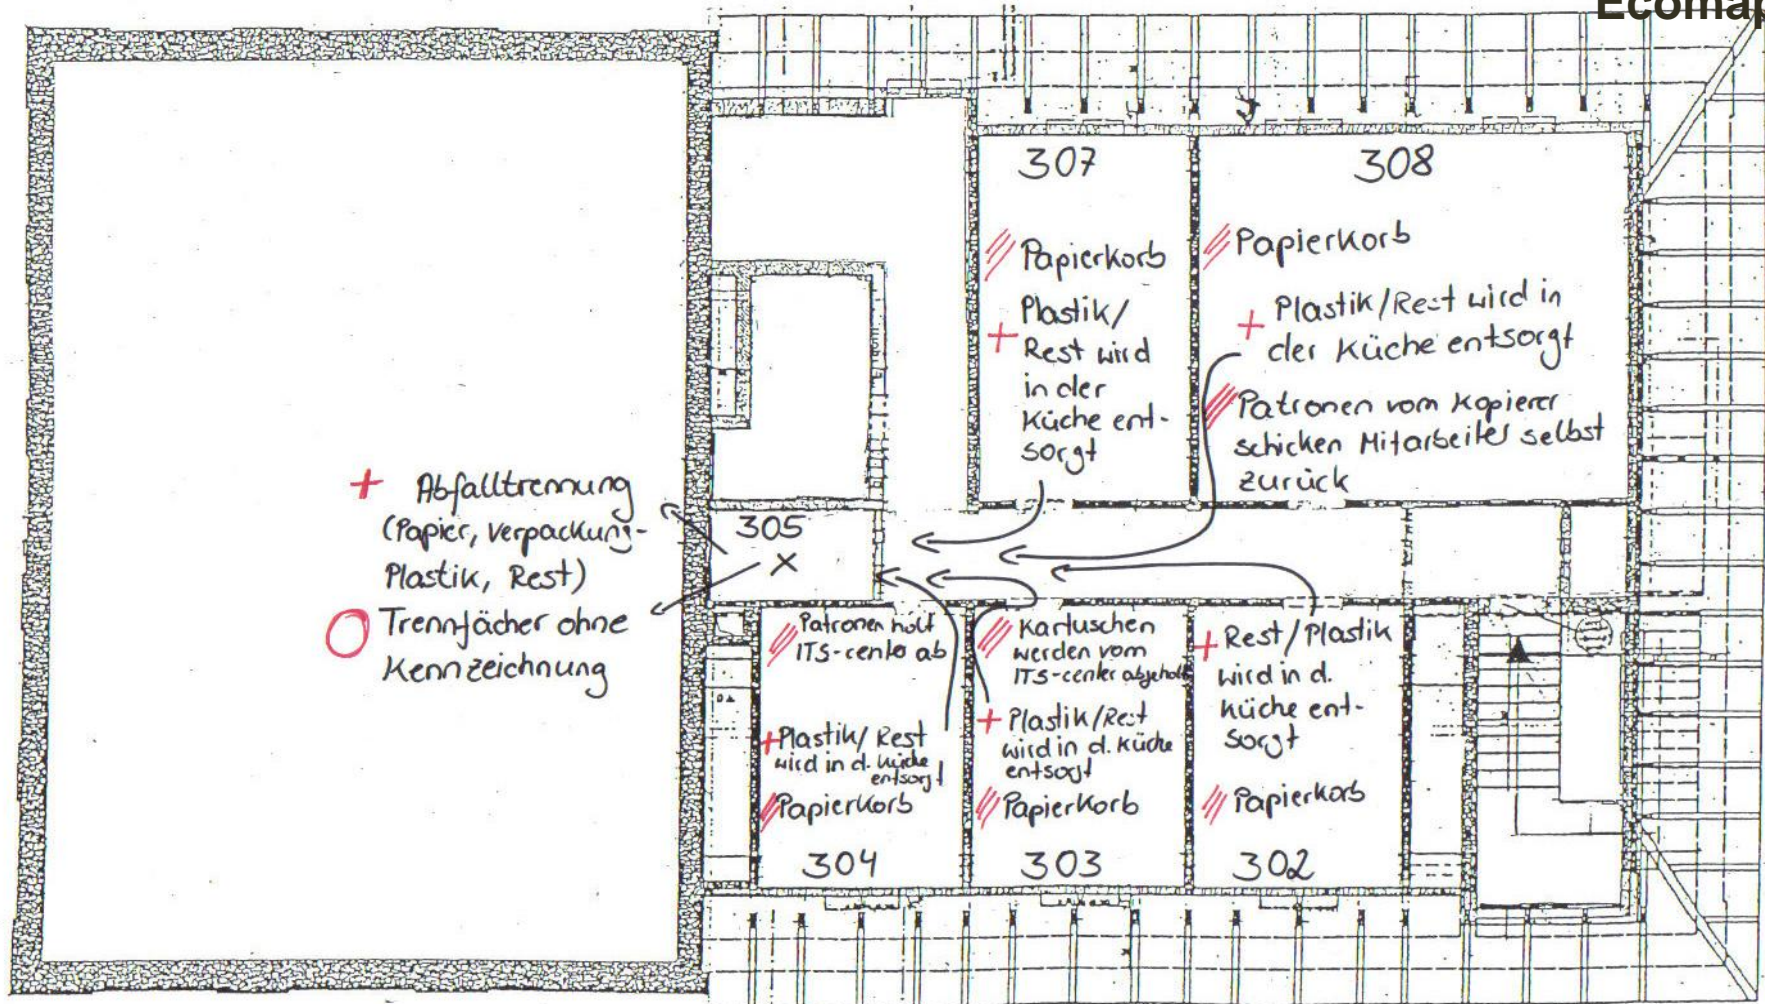 Ecomap
307
Papierkorb
Plastik/
Rest wird
in der
Küche ent-
sorgt
308
Papierkorb
Plastik/Rest wird in
der Küche entsorgt
Patronen vom Kopierer
schicken Mitarbeiter selbst
zurück
Abfalltrennung
(Papier, Verpackung-
Plastik, Rest)
Trennfächer ohne
Kennzeichnung
305
X
Patronen holt
ITS-center ab
Plastik/Rest
wird in d. Küche
entsorgt
Papierkorb
304
Kartuschen
werden vom
ITS-center abgeholt
Plastik/Rest
wird in d. Küche
entsorgt
Papierkorb
303
Rest/Plastik
wird in d.
Küche ent-
sorgt
Papierkorb
302